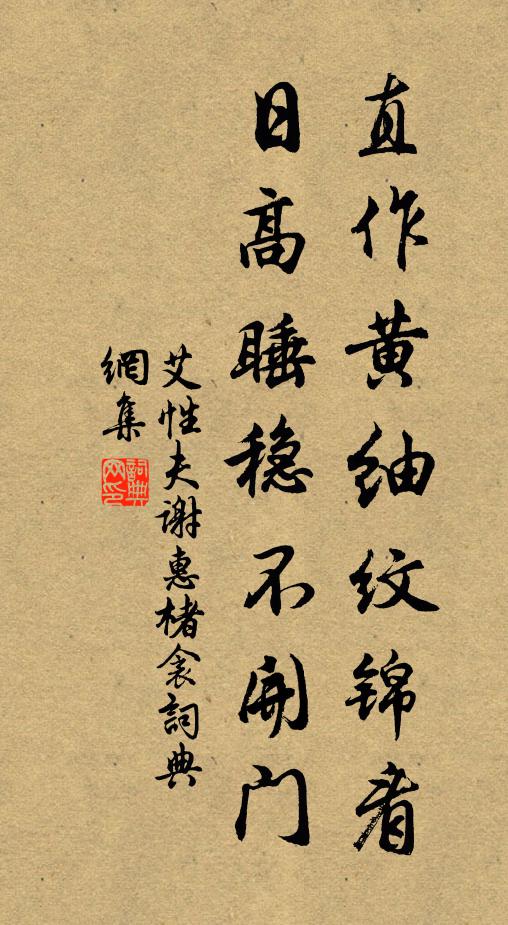 直作黄紬纹锦看
日高睡稳不開门
艾性夫谢惠楮衾詞典
網集
詞典網印